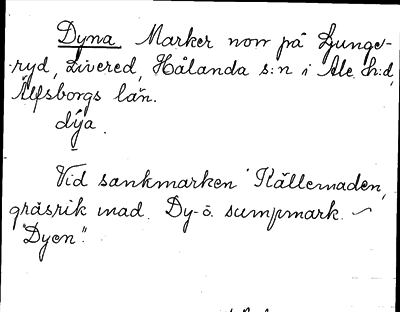 Dyna Marker norr på Ljunge-
-ryd, Livered, Hålanda s:n i Ale h:d,
Älfsborgs län.
dýa.
Vid sankmarken Källemaden,
gräsrik mad. Dy- o. sumpmark. ~
"Dyen".